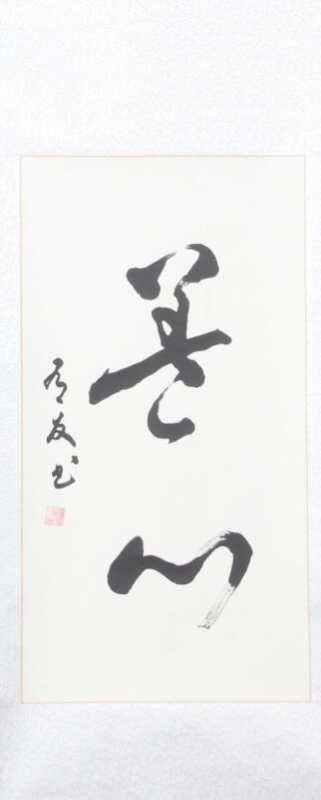 善心
友书